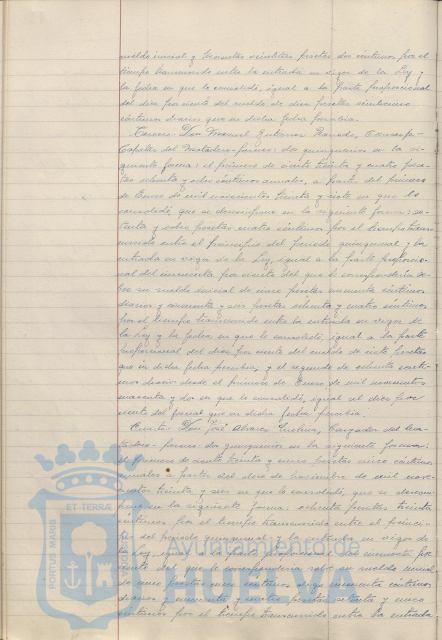 sueldo inicial y trescientas veintitres pesetas dos céntimos por el
tiempo transcurrido entre la entrada en vigor de la Ley y
la fecha en que lo consolidó, igual a la parte proporcional
del diez por ciento del sueldo de diez pesetas veinticinco
céntimos diarios que en dicha fecha percibía.
Tercero: Don Manuel
del Matadero: dos quinquenios en la si-
guiente forma: el primero de ciento treinta y cuatro pese-
tas ochenta y ocho céntimos anuales, a partir del primero
de Enero de mil novecientos treinta y siete en que lo
consolidó, que se descompone en la siguiente forma: se-
tenta y ocho pesetas cuatro céntimos por el tiempo trans-
currido entre el principio del periodo quinquenal y la
entrada en vigor de la Ley, igual a la parte proporcio-
nal del cincuenta por ciento del que le correspondería so-
bre su sueldo inicial de cinco pesetas cincuenta céntimos
diarios y cincuenta y seis pesetas ochenta y cuatro céntimos
por el tiempo transcurrido entre la entrada en vigor de
la Ley y la fecha en que lo consolidó, igual a la parte
proporcional del diez por ciento del sueldo de siete pesetas
que en dicha fecha percibía, y el segundo de
diario desde el primero de Enero de mil novecientos
cuarenta y dos en que lo consolidó, igual al diez por
ciento del jornal que en dicha fecha percibía.
Cuarto: Don José Alvarez del Ma-
tadero: dos quinquenios en la siguiente forma:
el primero de ciento treinta y cinco pesetas cinco céntimos
anuales a partir del doce de Noviembre de mil nove-
cientos treinta y seis en que lo consolidó, que se descom-
pone en la siguiente forma: ochenta pesetas treinta
céntimos por el tiempo transcurrido entre el princi-
pio del periodo quinquenal y la entrada en vigor de
la Ley, igual a la parte proporcional del cincuenta por
ciento del que le correspondería sobre su sueldo inicial
de cinco pesetas cincuenta céntimos
diarios y cincuenta y cuatro pesetas setenta y cinco
céntimos por el tiempo transcurrido entre la entrada
PORTUS MARIS
ET TERRÆ
Ayuntamiento de
HUELVA